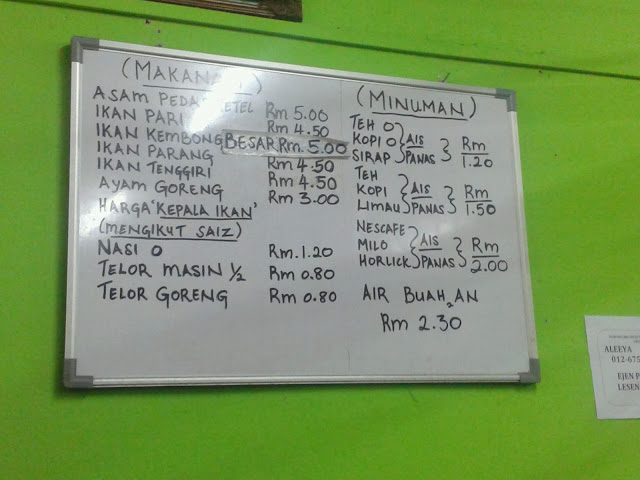 (MAKANAN)
ASAM PEDAS TETEL Rm 5.00
IKAN PARI Rm 4.50
IKAN KEMBONG BESAR Rm. 5.00
IKAN PARANG Rm 4.50
IKAN TENGGIRI Rm 4.50
AYAM GORENG Rm 3.00
HARGA 'KEPALA IKAN'
(MENGIKUT SAIZ)
NASI O Rm.1.20
TELOR MASIN ½ Rm 0.80
TELOR GORENG Rm 0.80
(MINUMAN)
TEH O
KOPI O AIS Rm
SIRAP PANAS 1.20
TEH
KOPI AIS Rm
LIMAU PANAS 1.50
NESCAFE
MILO AIS Rm
HORLICK PANAS 2.00
AIR BUAH₂AN
Rm 2.30
ALEEYA
012-675
EJEN P
LESEN